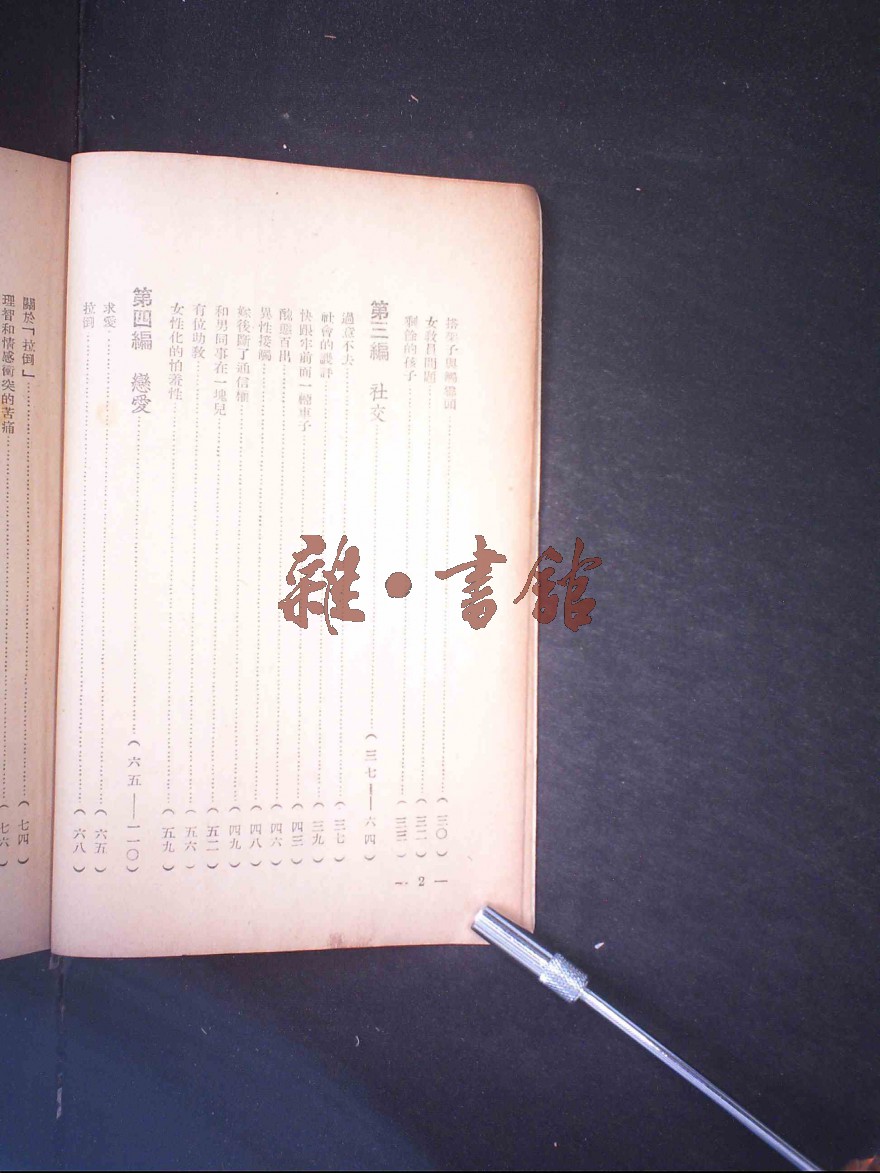 女教員問題……(三二)
剩餘的孩子……(三三)
第三編 社交……(三七——六四)
過意不去……(三七)
社會的譏評……(三九)
快跟牢前面一輛車子……(四三)
醜態百出……(四六)
異性接觸……(四八)
嫁後斷了通信……(四九)
和男同事在一塊兒……(五二)
有位助教……(五六)
女性化的怕羞性……(五九)
第四編 戀愛……(六五——一一〇)
求愛……(六五)
拉倒……(六八)
— 2 —
關於「拉倒」……(七四)
理智和情感衝突的苦痛……(七六)
雜·書館